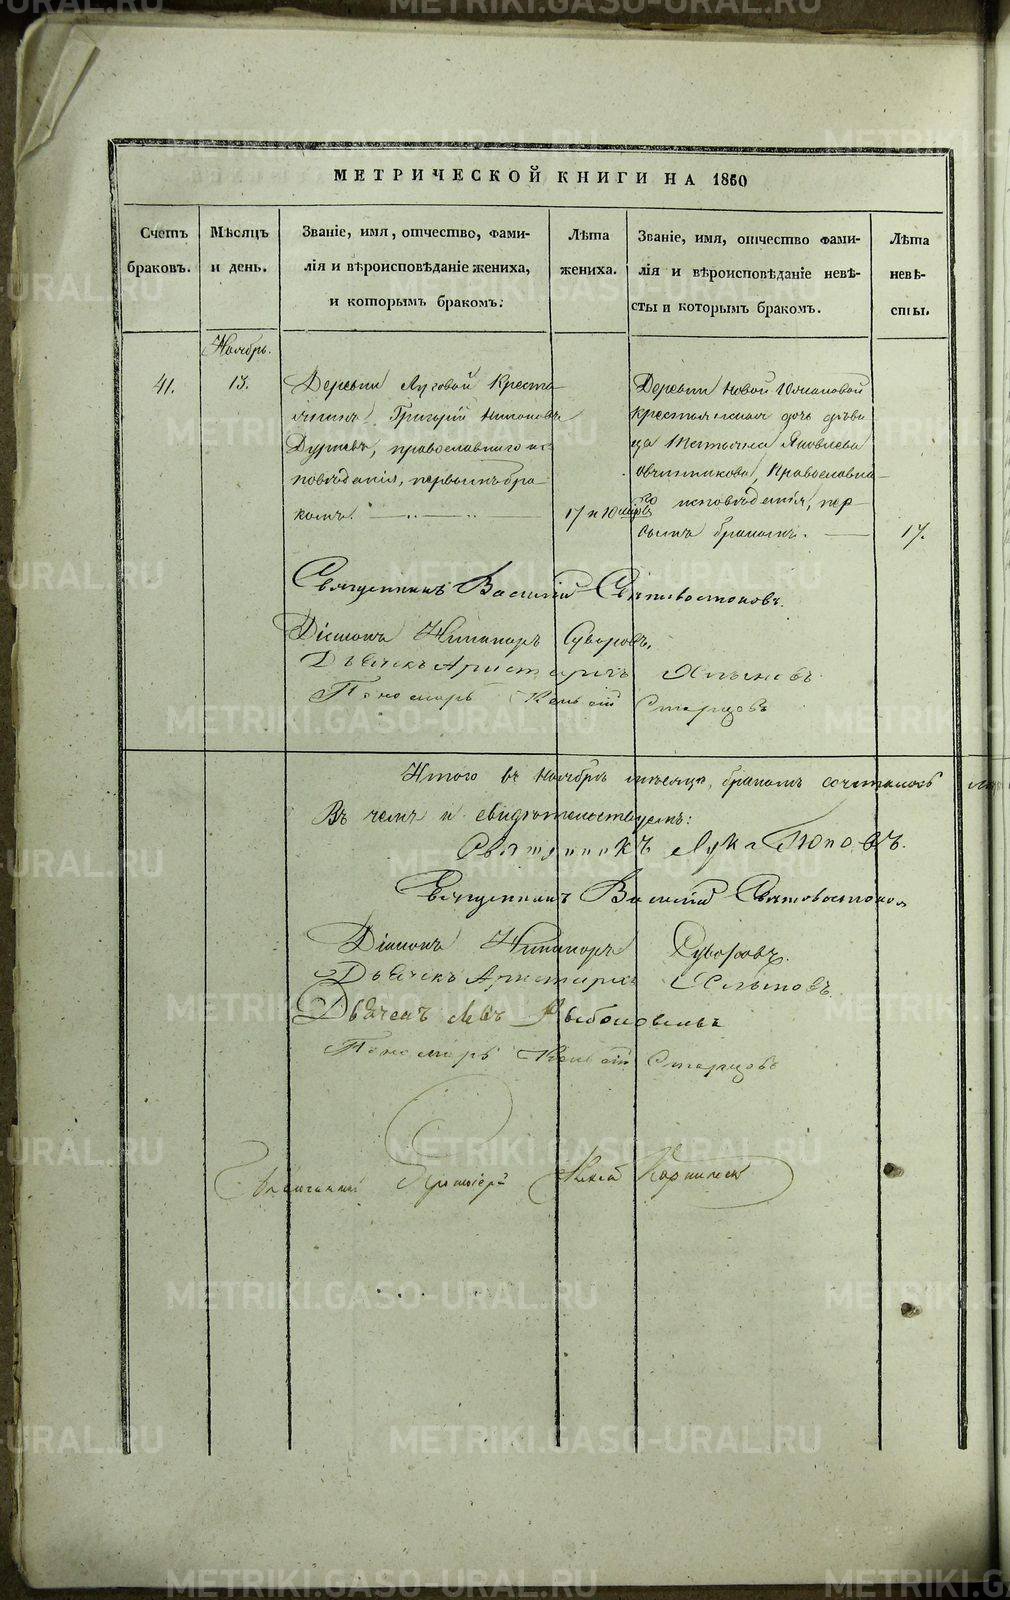 МЕТРИЧЕСКОЙ КНИГИ НА 1860
Счетъ браковъ.
Мѣсяцъ и день.
Званіе, имя, отчество, фами-
лія и вѣроисповѣданіе жениха,
и которымъ бракомъ.
Лѣта жениха.
Званіе, имя, отчество фами-
лія и вѣроисповѣданіе невѣ-
сты и которымъ бракомъ.
Лѣта невѣ-
сты.
Ноябрь.
41.
13.
Деревни Луговой Кресть-
янинъ Григорій
православнаго ис-
повѣданія, первымъ бра-
комъ.
17 и 10
Деревни Новой
крестьянская дочь дѣви-
ца Татьяна Яковлева
Овчинникова, Православна-
го исповѣданія, пер-
вымъ бракомъ.
17.
Священникъ Василій Святовостоковъ.
Діаконъ Никаноръ Суворовъ.
Дьячекъ Аристархъ
Пономарь Старцовъ
Итого въ Ноябрѣ мѣсяцѣ, бракомъ сочеталось
Въ чемъ и свидѣтельствуемъ:
Священникъ Лука Поповъ.
Священникъ Василій Святовостоковъ
Діаконъ Никаноръ Суворовъ.
Дьячекъ Аристархъ
Дьячекъ Левъ
Пономарь Старцовъ
Благочинный Протоіерей
METRIKI.GASO-URAL.RU